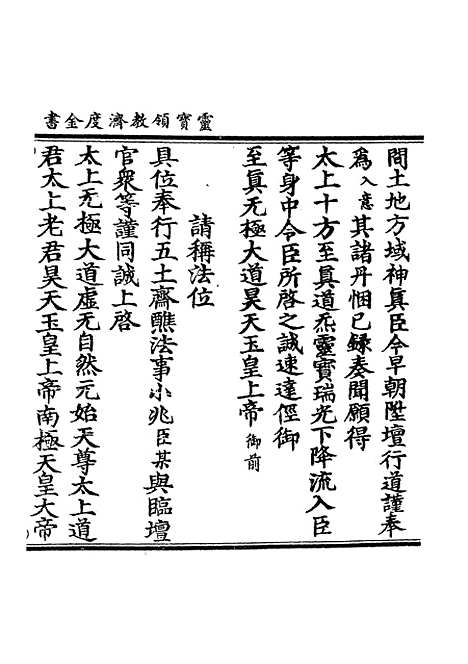 靈寶領教濟度金書
間土地方域神真臣今早朝陞壇行道謹奉
為入意其諸丹悃已録奏聞願得
太上十方至真道炁靈寶瑞光下降流入臣
等身中令臣所啓之誠速達徑御
至真无極大道昊天玉皇上帝御前
請稱法位
具位奉行五土齋醮法事小兆臣某與臨壇
官衆等謹同誠上啓
太上无極大道虛无自然元始天尊太上道
君太上老君昊天玉皇上帝南極天皇大帝